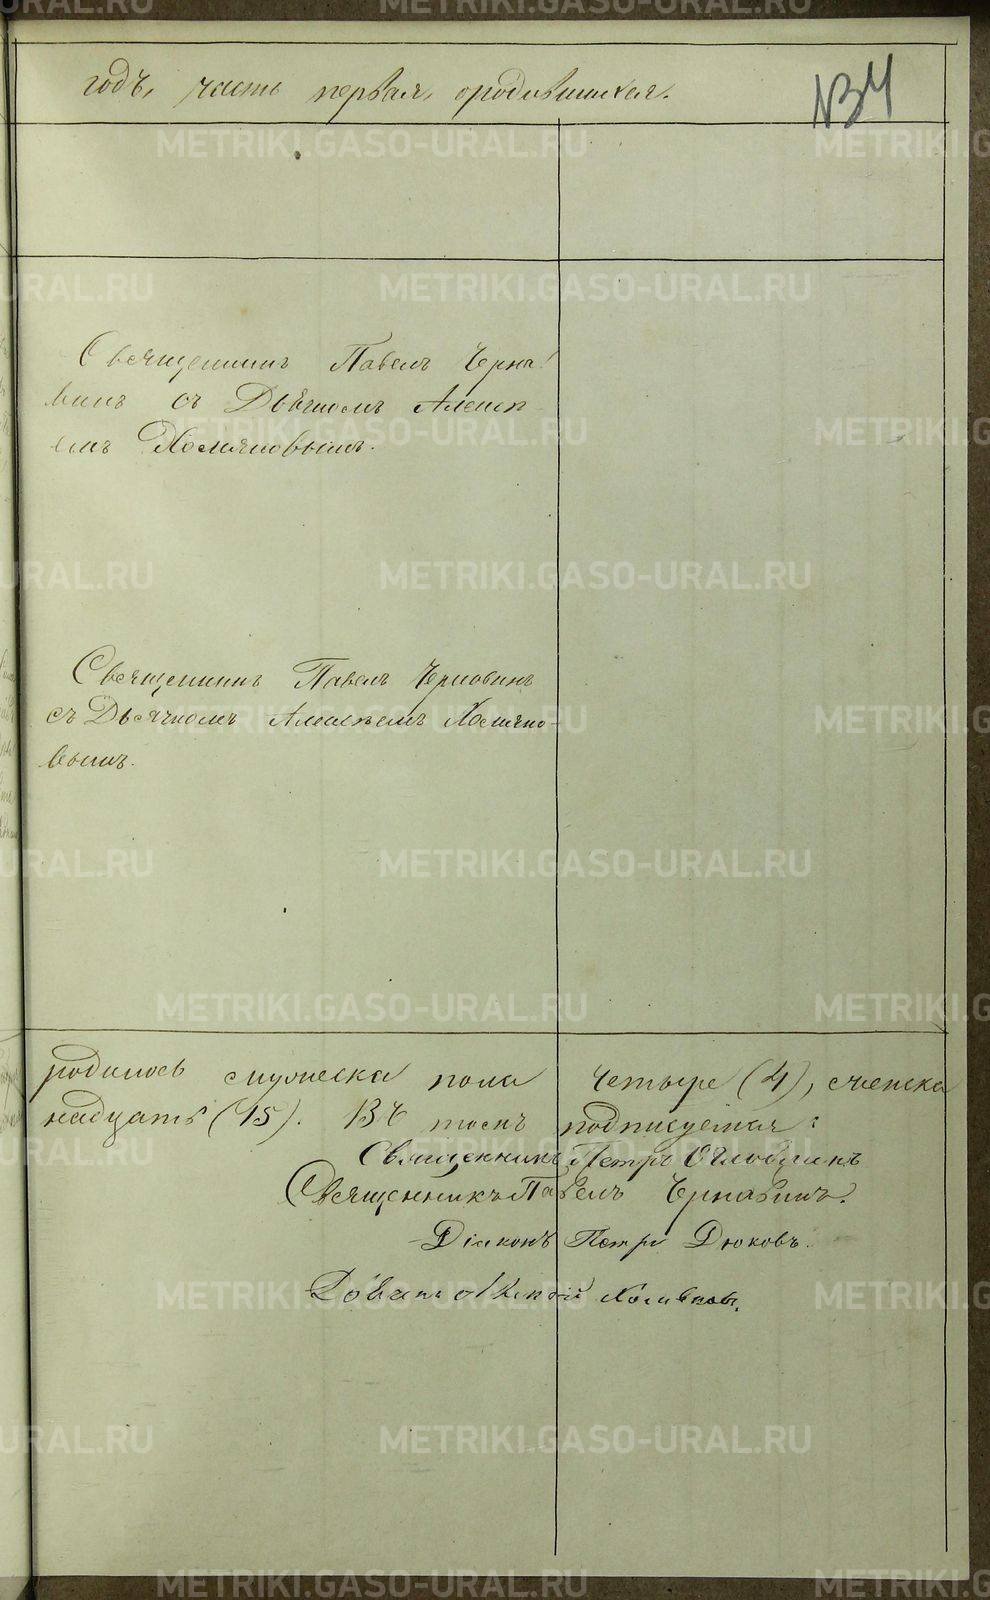 годъ, часть первая, ородившихся.
134
Священникъ Павелъ Черна
винъ съ Дьячкомъ Алексѣ
емъ Хомяковымъ.
Священникъ Павелъ Чернавинъ
съ Дьячкомъ Алексѣемъ Хомяко-
вымъ.
родилось мужеска пола четыре (4), а женска
надцать (15). Въ томъ подписуемся:
Священникъ Петръ
Священникъ Павелъ Чернавинъ.
Діаконъ Петръ Дюковъ.
METRIKI.GASO-URAL.RU